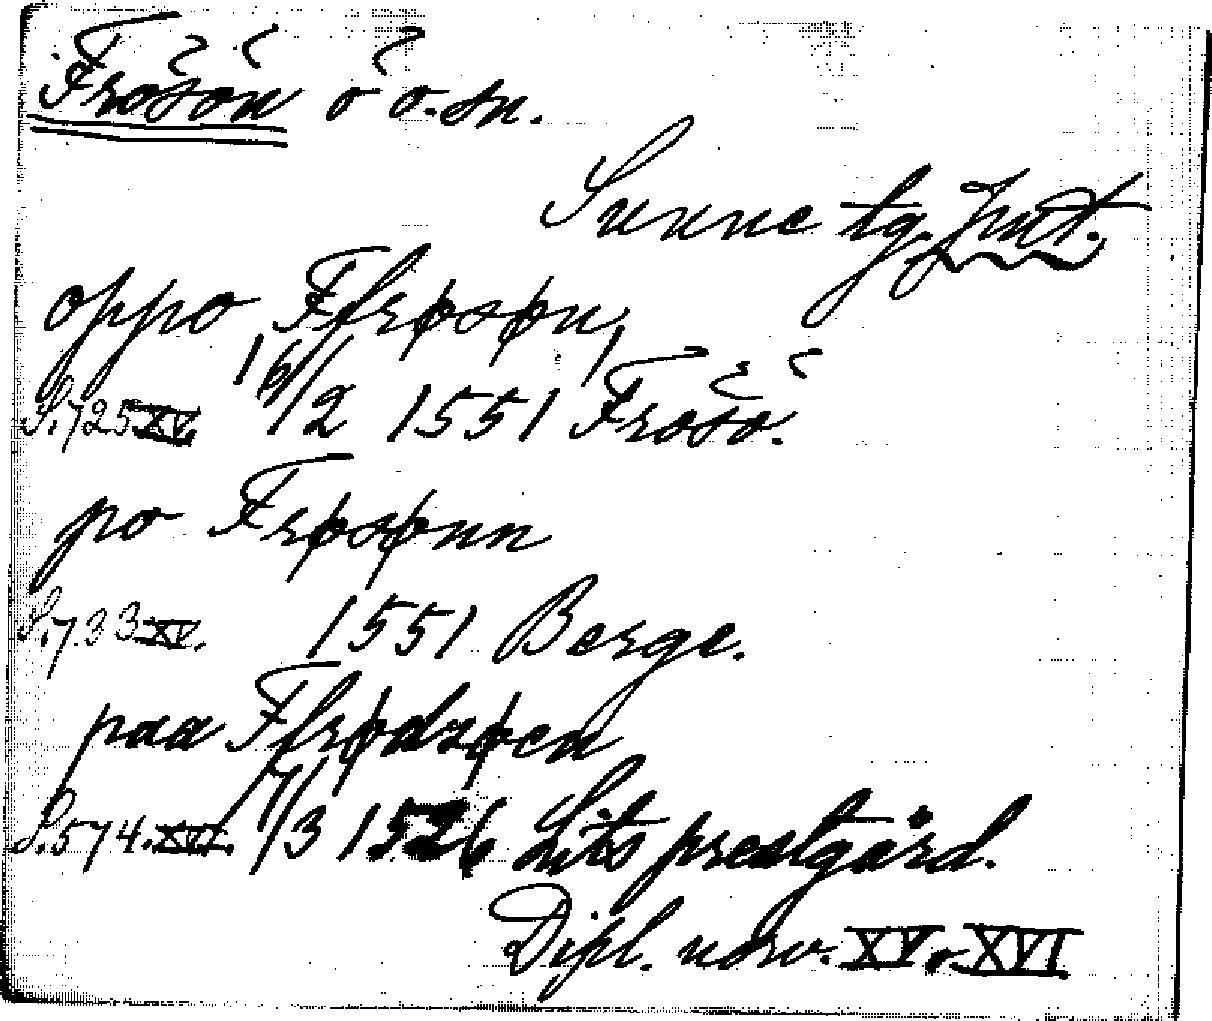 Frösön ö o. sn.
Sunne tg. Jmt.
oppo Ffrøsøn,
S. 725 XV. 16/2 1551 Frösö.
po Frøsønn
S. 733 XV. 1551 Berge.
paa Ffrødzøen
S. 574. XVI. 7/3 1526 Lits prestgård.
Dipl. norv. XV o. XVI